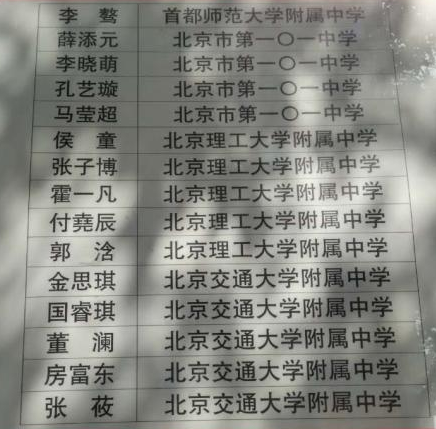 李 骜 首都师范大学附属中学
薛添元 北京市第一〇一中学
李晓萌 北京市第一〇一中学
孔艺璇 北京市第一〇一中学
马莹超 北京市第一〇一中学
侯 童 北京理工大学附属中学
张子博 北京理工大学附属中学
霍一凡 北京理工大学附属中学
付堯辰 北京理工大学附属中学
郭 浛 北京理工大学附属中学
金思琪 北京交通大学附属中学
国睿琪 北京交通大学附属中学
董 澜 北京交通大学附属中学
房富东 北京交通大学附属中学
张 莜 北京交通大学附属中学